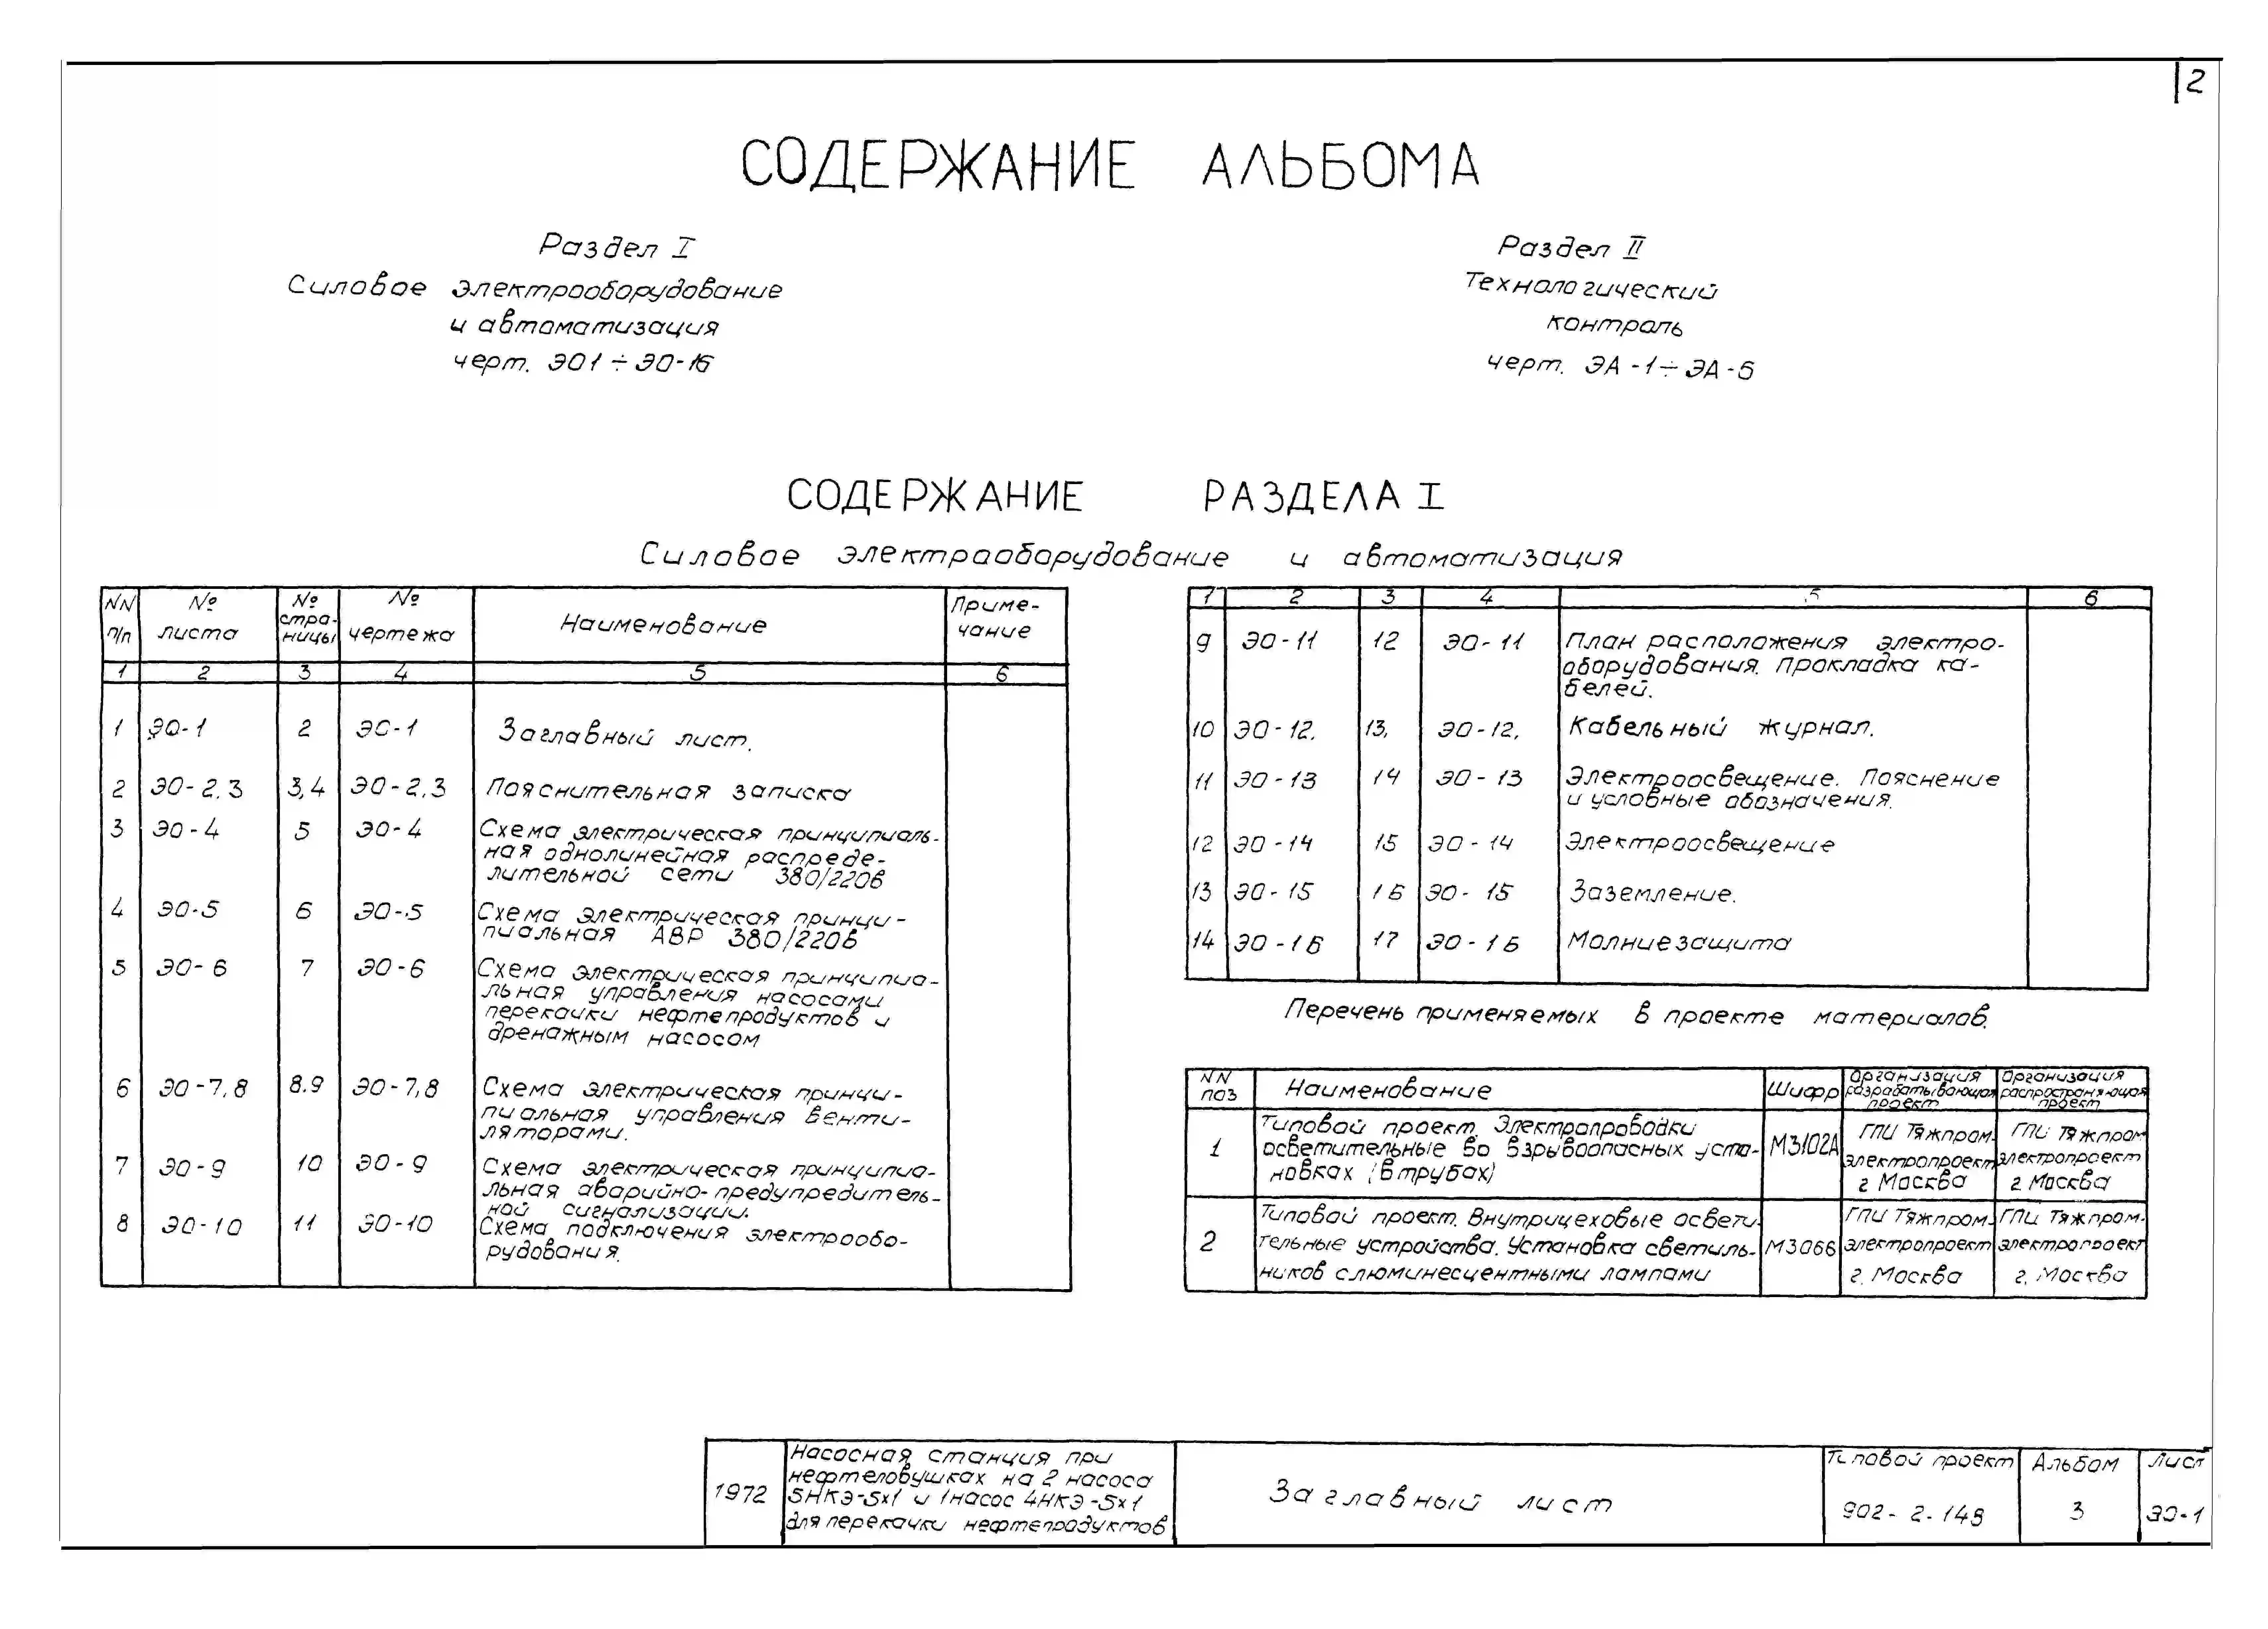 2
СОДЕРЖАНИЕ АЛЬБОМА
Раздел I
Силовое электрооборудование
и автоматизация
черт. ЭО1 ÷ ЭО-16
Раздел II
Технологический
контроль
черт. ЭА-1 ÷ ЭА-6
СОДЕРЖАНИЕ РАЗДЕЛА I
Силовое электрооборудование и автоматизация
NN п/п № листа № страницы № чертежа Наименование Приме-
чание
1 2 3 4 5 6
1 ЭО-1 2 ЭО-1 Заглавный лист.
2 ЭО-2,3 3,4 ЭО-2,3 Пояснительная записка
3 ЭО-4 5 ЭО-4 Схема электрическая принципиаль-
ная однолинейная распреде-
лительной сети 380/220в
4 ЭО-5 6 ЭО-5 Схема электрическая принци-
пиальная АВР 380/220в
5 ЭО-6 7 ЭО-6 Схема электрическая принципиа-
льная управления насосами
перекачки нефтепродуктов и
дренажным насосом
6 ЭО-7,8 8.9 ЭО-7,8 Схема электрическая принци-
пиальная управления венти-
ляторами.
7 ЭО-9 10 ЭО-9 Схема электрическая принципиа-
льная аварийно-предупредитель-
ной сигнализации.
8 ЭО-10 11 ЭО-10 Схема подключения электрообо-
рудования.
1 2 3 4 5 6
9 ЭО-11 12 ЭО-11 План расположения электро-
оборудования. Прокладка ка-
белей.
10 ЭО-12. 13, ЭО-12, Кабельный журнал.
11 ЭО-13 14 ЭО-13 Электроосвещение. Пояснение
и условные обозначения.
12 ЭО-14 15 ЭО-14 Электроосвещение
13 ЭО-15 16 ЭО-15 Заземление.
14 ЭО-16 17 ЭО-16 Молниезащита
Перечень применяемых в проекте материалов.
NN поз Наименование Шифр Организация разрабатывающая проект Организация распространяющая проект
1 Типовой проект. Электропроводки
осветительные во взрывоопасных уста-
новках (в трубах)
М3102А
ГПИ Тяжпром-
электропроект
г Москва
ГПИ Тяжпром
электропроект
г. Москва
2 Типовой проект. Внутрицеховые освети-
тельные устройства. Установка светиль-
ников с люминесцентными лампами
М3066
ГПИ Тяжпром-
электропроект
г. Москва
ГПИ Тяжпром-
электропроект
г. Москва
1972
Насосная станция при
нефтеловушках на 2 насоса
5НКЭ-5х1 и 1 насос 4НКЭ-5х1
для перекачки нефтепродуктов
Заглавный лист
Типовой проект
902-2-148
Альбом
3
Лист
ЭО-1